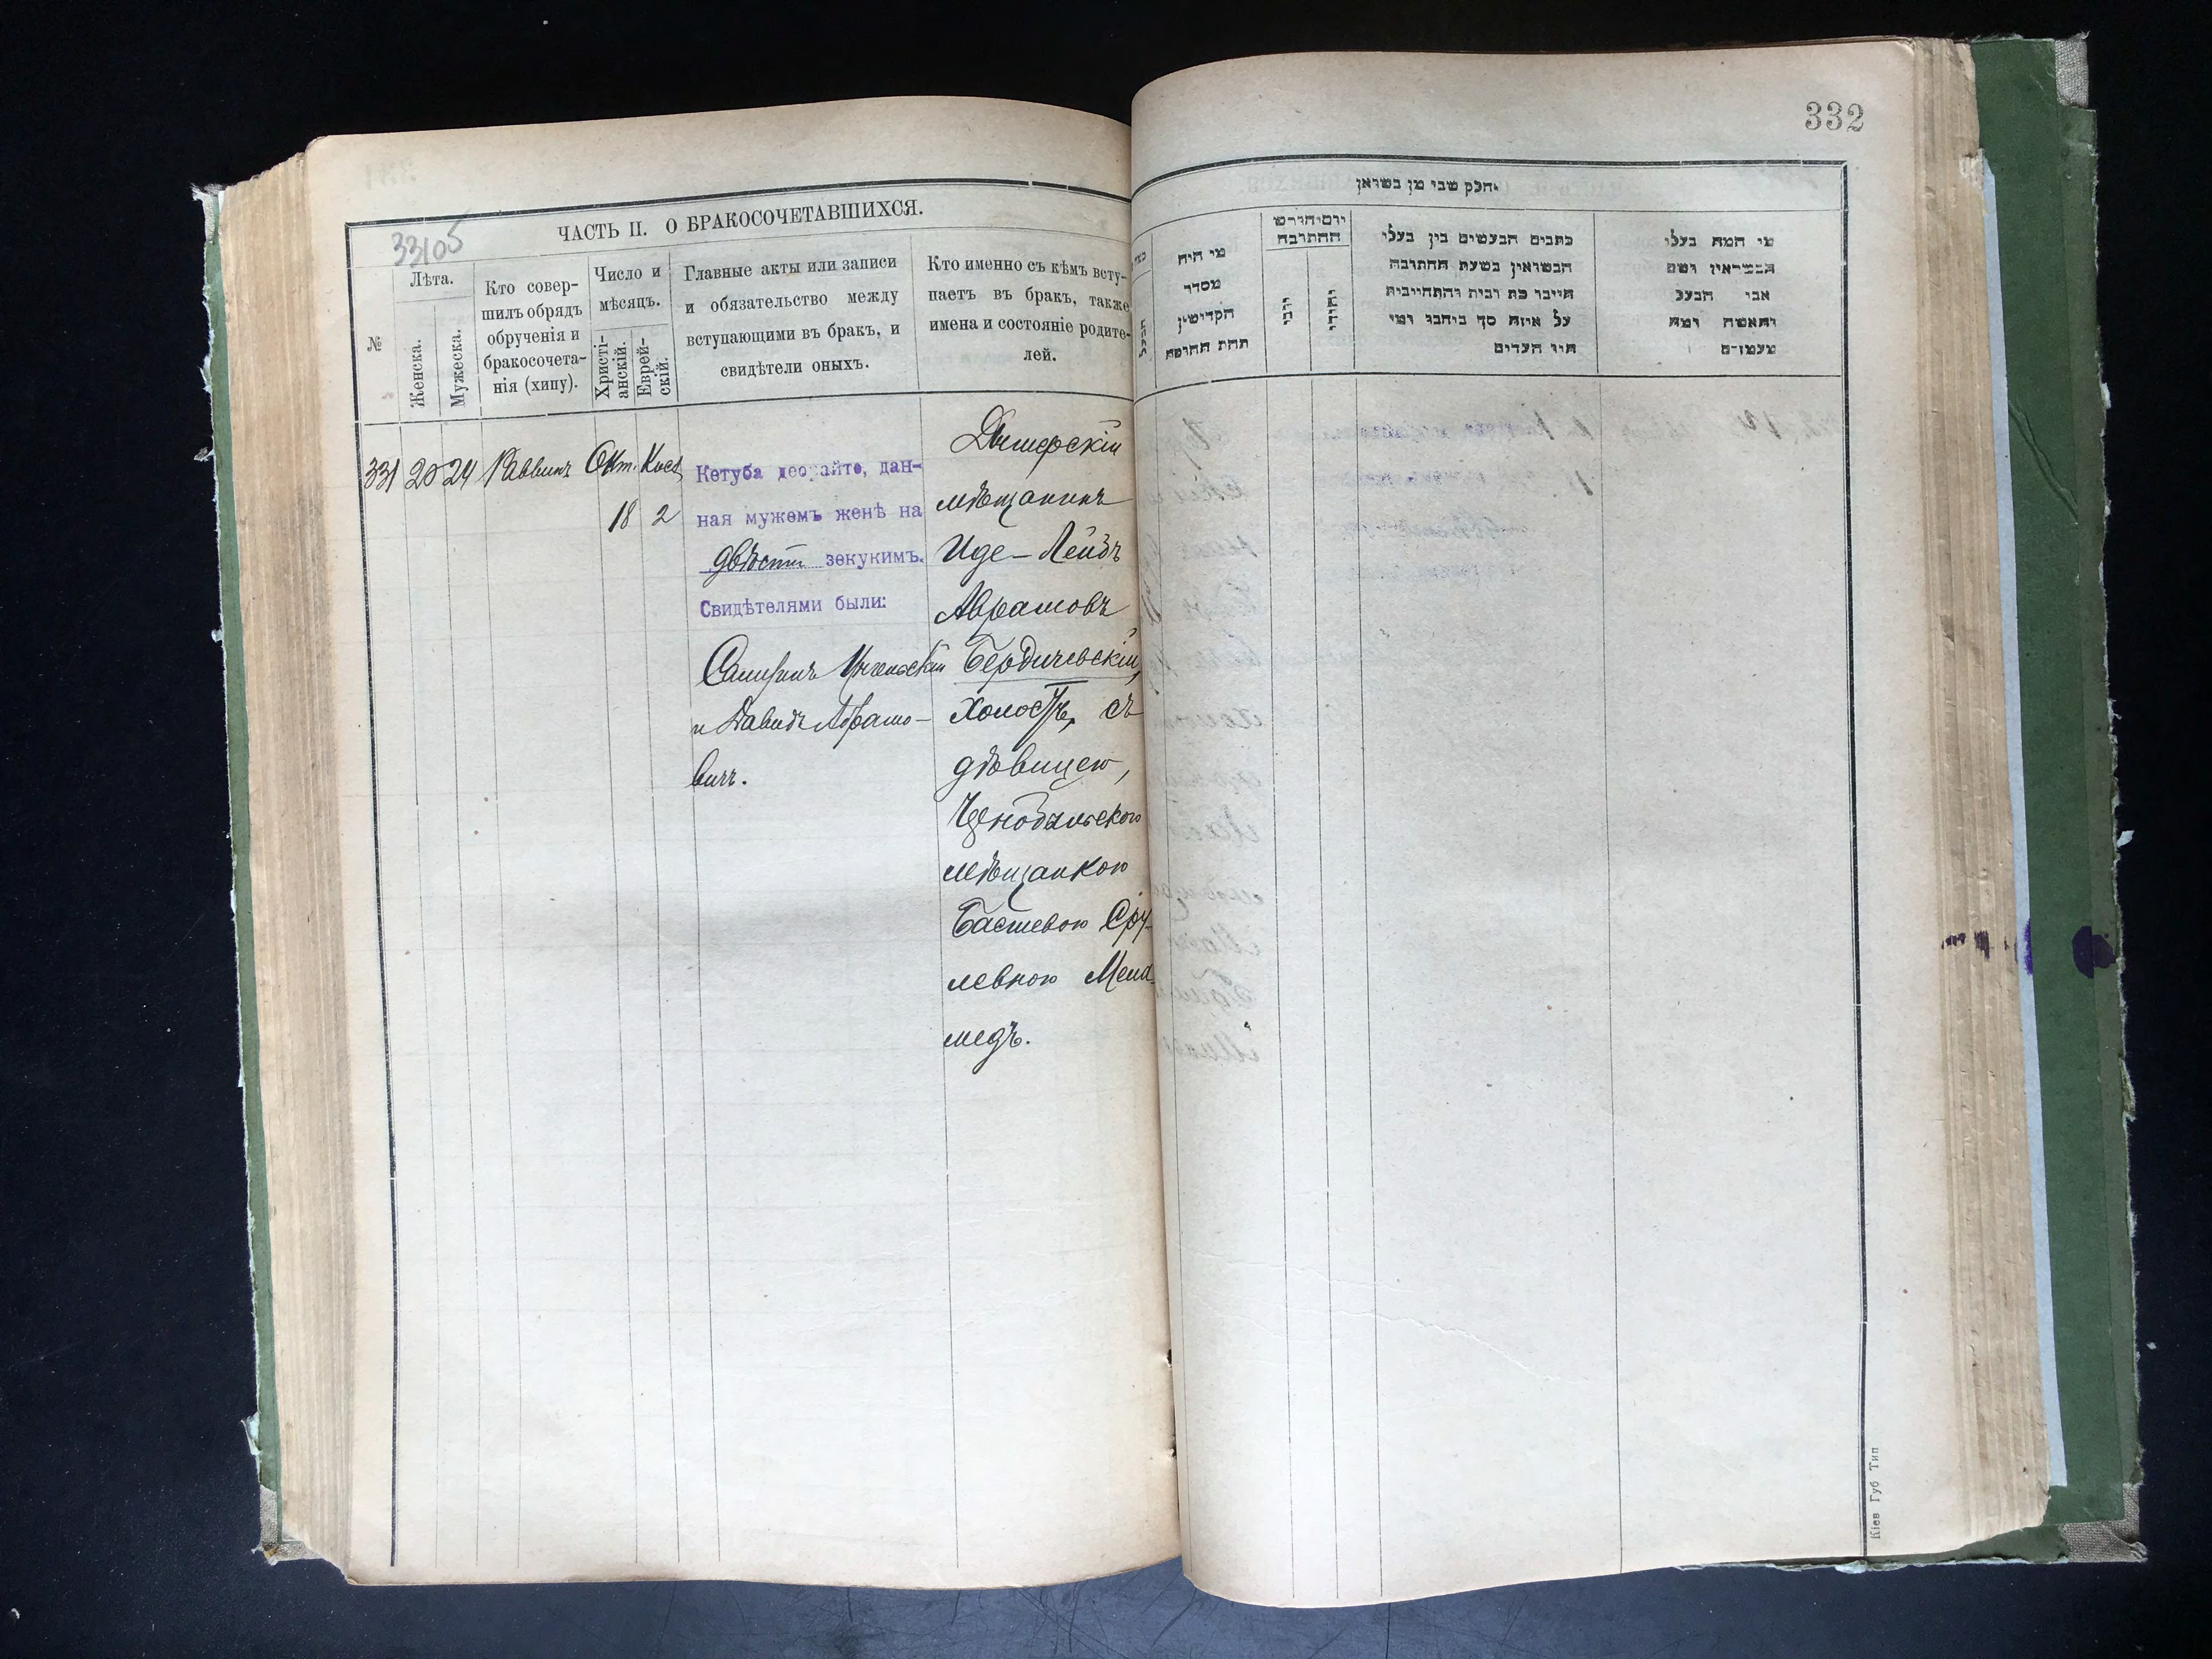 332
ЧАСТЬ II. О БРАКОСОЧЕТАВШИХСЯ.
33105
№
Лѣта.
Женска.
Мужеска.
Кто совер-
шилъ обрядъ
обрученія и
бракосочета-
нія (хипу).
Число и
мѣсяцъ.
Христі-
анскій.
Еврей-
скій.
Главные акты или записи
и обязательство между
вступающими въ бракъ, и
свидѣтели оныхъ.
Кто именно съ кѣмъ всту-
паетъ въ бракъ, также
имена и состояніе родите-
лей.
331 20 24 Раввинъ Окт.
18 2
Кетуба деорайте, дан-
ная мужемъ женѣ на
двѣсти зекукимъ.
Свидѣтелями были:
и Давидъ Абрамо-
вичъ.
Дымерскій
мѣщанинъ
Иде-Лейбъ
Аврамовъ
Бердичевскій,
холостъ, съ
дѣвицею,
мѣщанкою
Басшевою Сру-
левною Мела-
медъ.
חלק שני מן נשואין
מי היה
מסדר
הקדושין
תחת החופה
הבעל
יום וחודש
החתונה
יוני
יהודי
כתבים הנעשים בין בעלי
הנשואין בשעת החתונה
היינו כת ובית והתחייבות
על איזה סך ביניהם ומי
היו העדים
מי המה בעלי
הנשואין ושם
אבי הבעל
והאשה ומה
מעמדם
Кіев Губ Тип